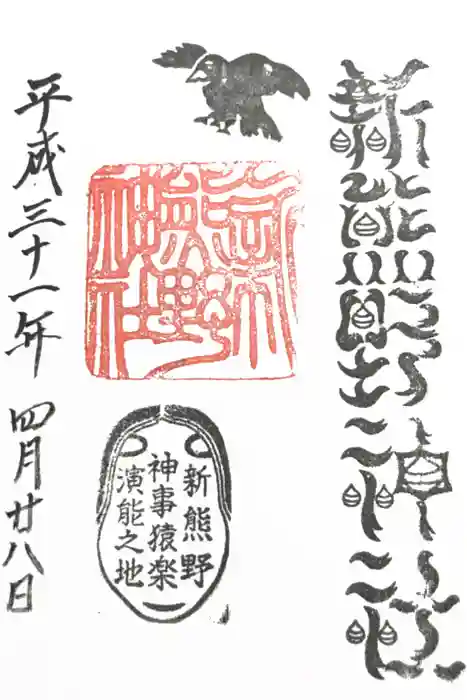 新熊野神社
新熊野
神事猿楽
演能之地
平成三十一年 四月廿八日